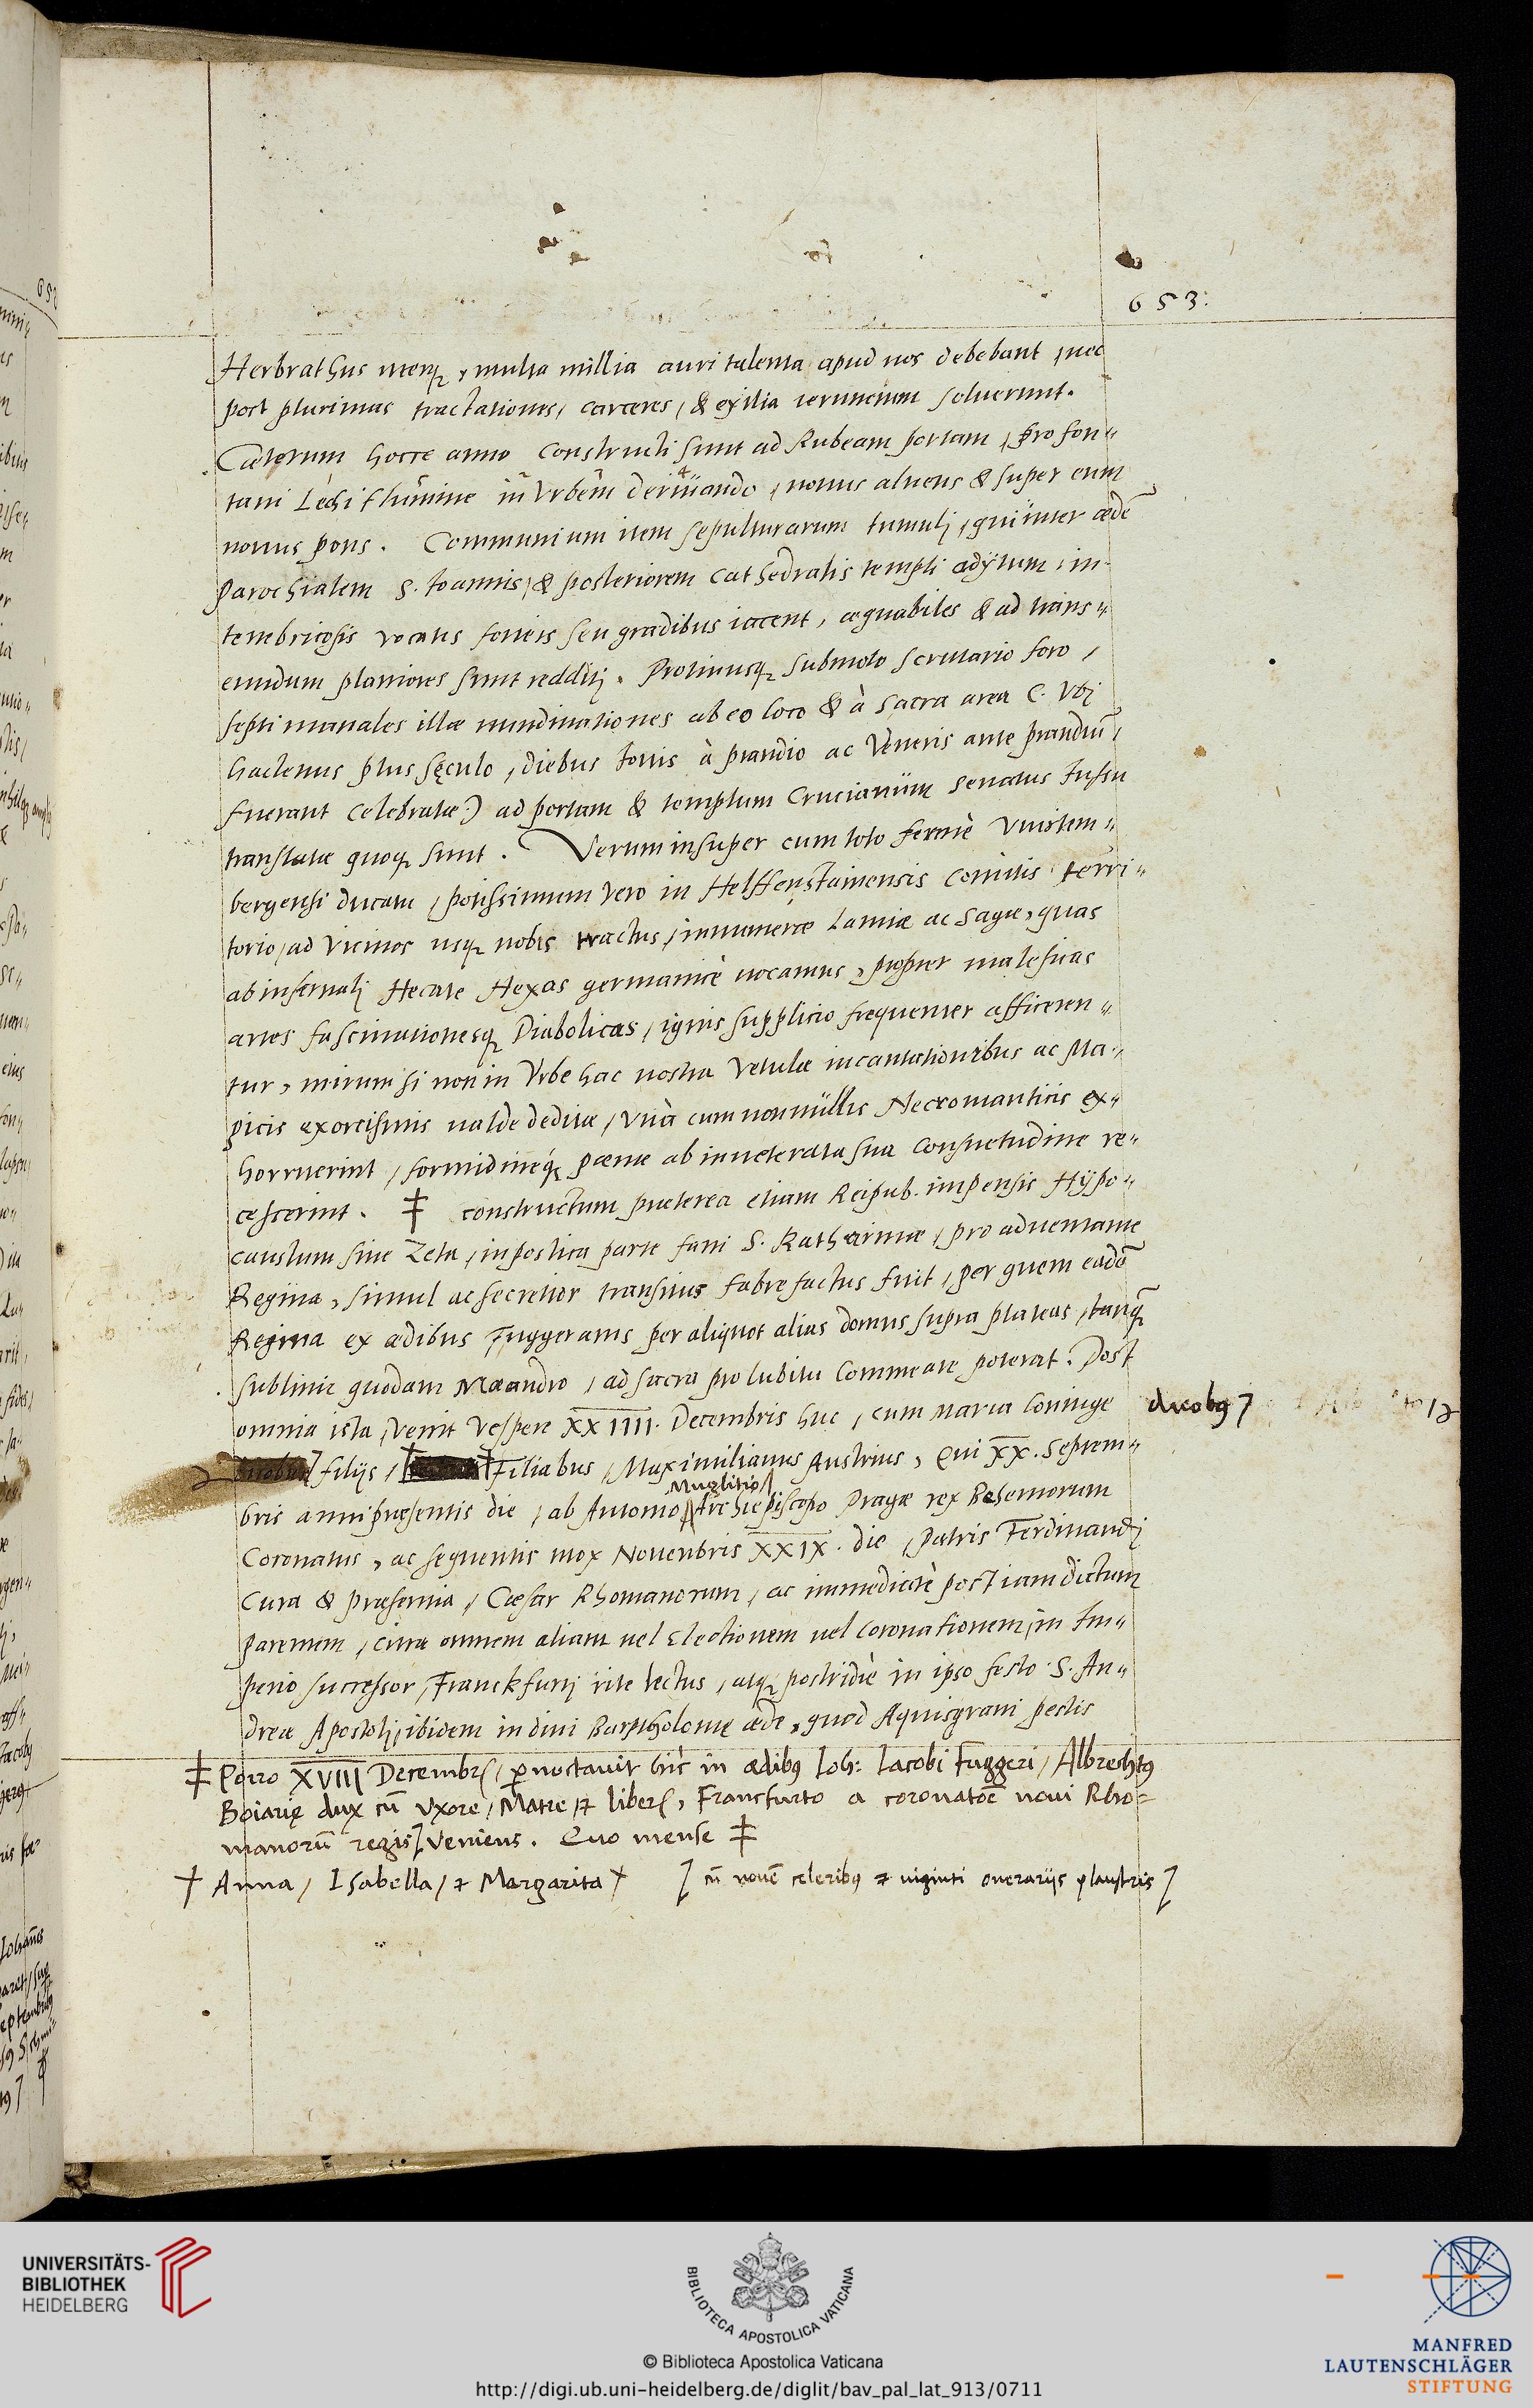 653.
Herbrathus uterq, multa millia auri talenta apud nos debebant, nec
post plurimas tractationes, carceres, & exilia
Cæterum hocce anno constructi sunt ad Rubeam portam, pro fon=
tani Lechi flumine in Vrbem deriuando, nouus alueus & super eum
nouus pons. Communium item sepulturarum tumulj, qui inter ædē
parochialem S. Joannis, & posteriorem cathedralis templi adÿtum, in
tenebricosis vocatis forneis seu gradibus iacent, æquabiles & ad trans=
eundum planiores sunt redditj. Protinusq submoto scrutario foro,
septimanales illæ nundinationes ab eo loco & à sacra area (. Vbj
hactenus plus sęculo, diebus Iouis à prandio ac Veneris ante prandiū,
fuerant celebratæ.) ad portam & templum Crucianum senatus Iussu
translatæ quoq sunt. Verum insuper cum toto fermè Vuirtem=
bergensi ducatu, potissimum vero in Helffenstainensis comitis terri=
torio, ad vicinos usq nobis tractus, innumeræ Lamiæ ac sagæ, quas
ab infernalj Hecate Hexas germanicè uocamus, propter maleficas
artes fascinationesq Diabolicas, ignis supplicio frequenter afficeren=
tur, mirum si non in Vrbe hac nostra Vetulæ incantationibus ac Ma=
gicis exorcismis ualde deditæ, vnà cum nonnullis Necromanticis ex=
horruerint, formidineq́ pœnæ ab inueterata sua consuetudine re=
cesserint. ‡ constructum præterea etiam Reipub. impensis Hÿpo=
caustum siue Zeta, in postica parte fani S. Katharinæ, pro aduentante
Regina, simul ac secretior transitus fabrefactus fuit, per quem eadē
Regina ex ædibus Fuggeranis per aliquot alias domus supra plateas, tanq
sublimi quodam Mæandro, ad sacra pro lubitu commeare poterat. Post
omnia ista, venit vespere XXIIII. Decembris huc, cum Maria Coniuge duobꝰ ]
filijs, Filiabus, Maximilianus Austrius, Qui XX. Septem=
Muglitio
bris anni præsentis die, ab Antonio Archiepiscopo Pragæ rex Bohemorum
Coronatus, ac sequentis mox Nouenbris XXIX. die, patris Ferdinandj
Cura & præsentia, Cæsar Rhomanorum, ac immediatè post iam dictum
parentem, citra omnem aliam uel Electionem uel coronationem, in Im=
perio successor, Franckfurtj rite lectus, atq postridiè in ipso festo S. An=
dreæ Apostolj, ibidem in diui Bartholomę æde, quod Aquisgrani pestis
‡ Porro XVIII Decembr, pnoctauit hic in ædibꝰ Ioh: Iacobi Fuggeri, Albrechtꝰ
Boiarię dux cū vxore, Matre, & liber, Francfurto a coronatōe noui Rho=
manorū regis ] veniens. Quo mense ‡
† Anna, Isabella, & Margarita † [ cū nouē celeribꝰ & uiginti onerarijs plaustris ]
UNIVERSITÄTS-
BIBLIOTHEK
HEIDELBERG
BIBLIOTECA APOSTOLICA VATICANA
© Biblioteca Apostolica Vaticana
http://digi.ub.uni-heidelberg.de/diglit/bav_pal_lat_913/0711
MANFRED
LAUTENSCHLÄGER
STIFTUNG